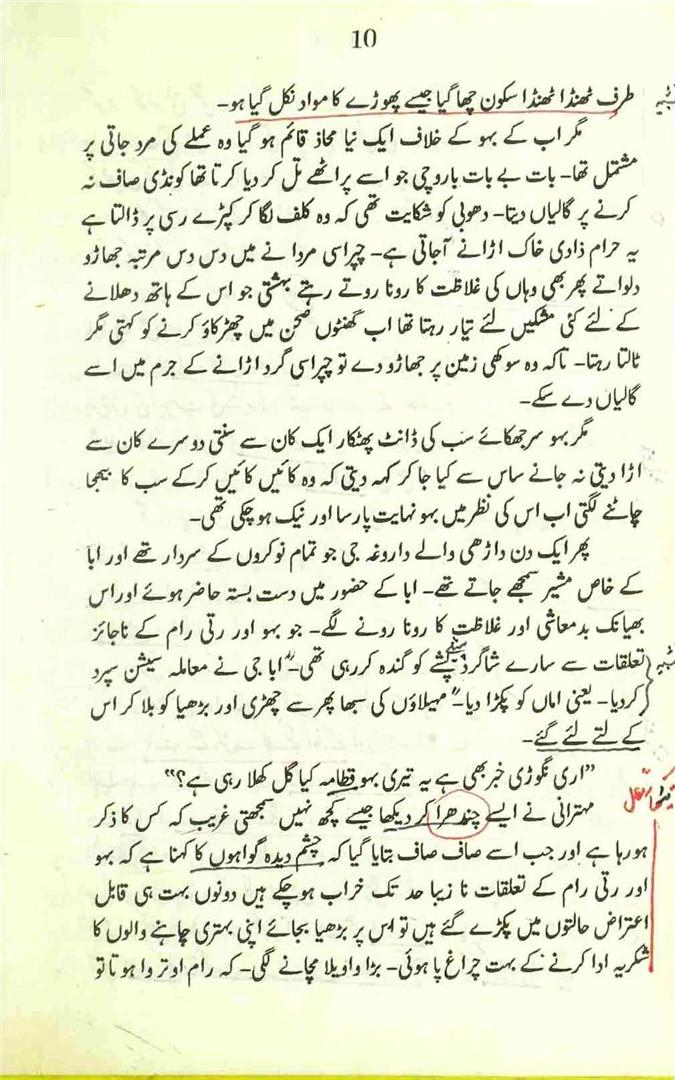 10
طرف ٹھنڈا ٹھنڈا سکون چھا گیا جیسے پھوڑے کا مواد نکل گیا ہو۔
مگر اب کے بہو کے خلاف ایک نیا محاذ قائم ہو گیا وہ عملے کی مرد جاتی پر
مشتمل تھا۔ بات بے بات باروچی جو اسے پراٹھے تل کر دیا کرتا تھا کونڈی صاف نہ
کرنے پر گالیاں دیتا۔ دھوبی کو شکایت تھی کہ وہ کلف لگا کر کپڑے رسی پر ڈالتا ہے
یہ حرام ذادی خاک اڑانے آجاتی ہے۔ چپراسی مردانے میں دس دس مرتبہ جھاڑو
دلواتے پھر بھی وہاں کی غلاظت کا رونا روتے رہتے بہشتی جو اس کے ہاتھ دھلانے
کے لئے کئی مشکیں لئے تیار رہتا تھا اب گھنٹوں صحن میں چھڑکاؤ کرنے کو کہتی مگر
ٹالتا رہتا۔ تاکہ وہ سوکھی زمین پر جھاڑو دے تو چپراسی گرد اڑانے کے جرم میں اسے
گالیاں دے سکے۔
مگر بہو سر جھکائے سب کی ڈانٹ پھٹکار ایک کان سے سنتی دوسرے کان سے
اڑا دیتی نہ جانے ساس سے کیا جا کر کہہ دیتی کہ وہ کائیں کائیں کرکے سب کا بھیجا
چاٹنے لگتی اب اس کی نظر میں بہو نہایت پارسا اور نیک ہو چکی تھی۔
پھر ایک دن داڑھی والے داروغہ جی جو تمام نوکروں کے سردار تھے اور ابا
کے خاص مشیر سمجھے جاتے تھے۔ ابا کے حضور میں دست بستہ حاضر ہوئے اور اس
بھیانک بدمعاشی اور غلاظت کا رونا رونے لگے۔ جو بہو اور رتی رام کے ناجائز
تعلقات سے سارے شاگرد پیشے کو گندہ کر رہی تھی۔ "ابا جی نے معاملہ سیشن سپرد
کر دیا۔ یعنی اماں کو پکڑا دیا۔" مہیلاؤں کی سبھا پھر سے چھڑی اور بڑھیا کو بلا کر اس
کے لتے لئے گئے۔
"اری نگوڑی خبر بھی ہے یہ تیری بہو قطامہ کیا گل کھلا رہی ہے؟"
مہترانی نے ایسے چندھرا کر دیکھا جیسے کچھ نہیں سمجھتی غریب کہ کس کا ذکر
ہو رہا ہے اور جب اسے صاف صاف بتایا گیا کہ چشم دیدہ گواہوں کا کہنا ہے کہ بہو
اور رتی رام کے تعلقات نا زیبا حد تک خراب ہو چکے ہیں دونوں بہت ہی قابل
اعتراض حالتوں میں پکڑے گئے ہیں تو اس پر بڑھیا بجائے اپنی بہتری چاہنے والوں کا
شکریہ ادا کرنے کے بہت چراغ پا ہوئی۔ بڑا واویلا مچانے لگی۔ کہ رام اوتروا ہوتا تو